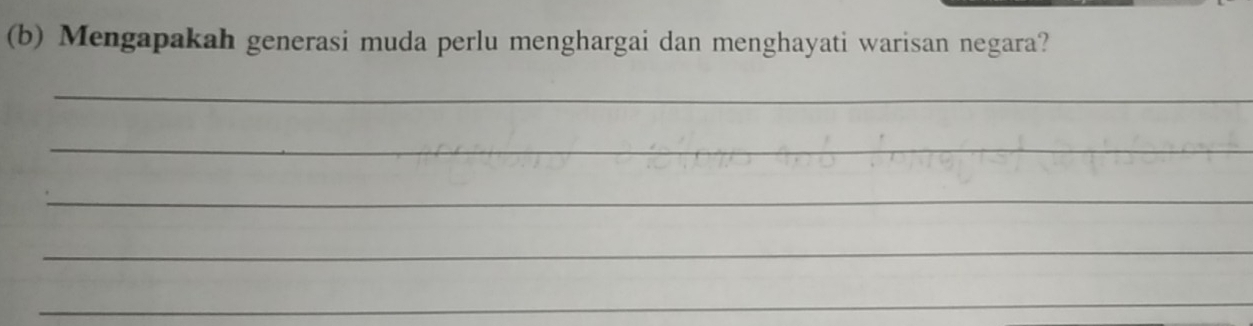 (b) Mengapakah generasi muda perlu menghargai dan menghayati warisan negara?